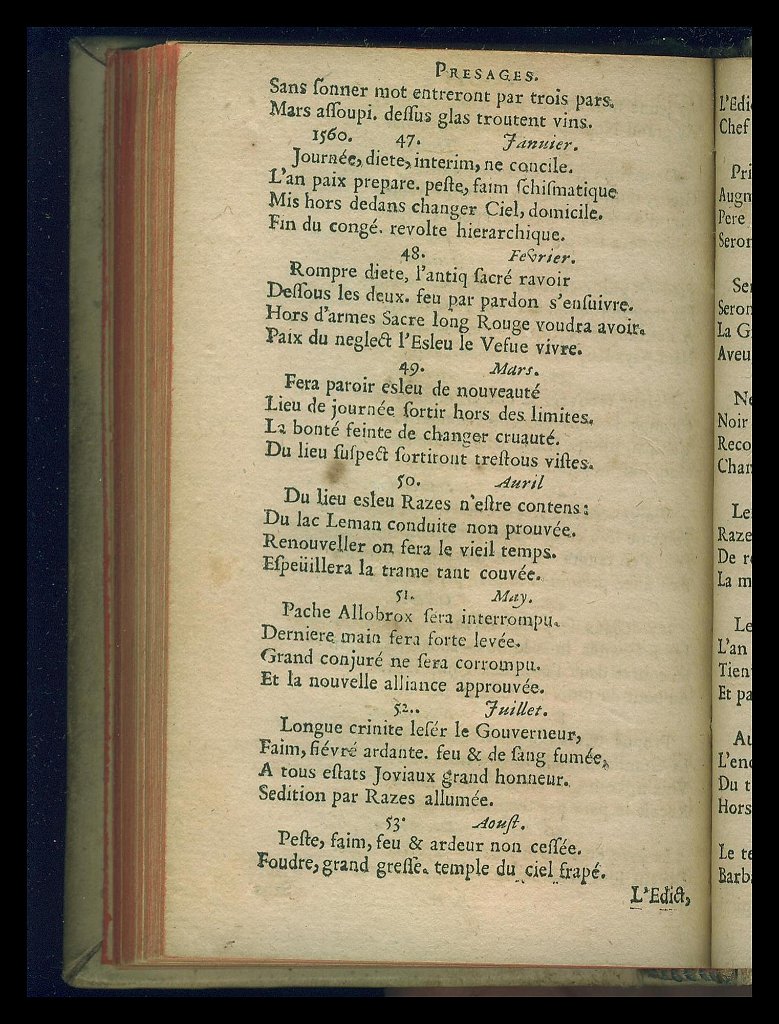 PRESAGES.
Sans ſonner mot entreront par trois pars.
Mars aſſoupi. deſſus glas troutent vins.
1560. 47. Januier.
Journée, diete, interim, ne concile.
L'an paix prepare. peſte, faim ſchiſmatique
Mis hors dedans changer Ciel, domicile.
Fin du congé. revolte hierarchique.
48. Fevrier.
Rompre diete, l'antiq ſacré ravoir
Deſſous les deux. feu par pardon s'enſuivre.
Hors d'armes Sacre long Rouge voudra avoir.
Paix du neglect l'Esleu le Vefue vivre.
49. Mars.
Fera paroir esleu de nouveauté
Lieu de journée ſortir hors des limites.
La bonté feinte de changer cruauté.
Du lieu ſuſpect ſortiront treſtous viſtes.
50. Auril
Du lieu esleu Razes n'eſtre contens:
Du lac Leman conduite non prouvée.
Renouveller on fera le vieil temps.
Eſpeüillera la trame tant couvée.
51. May.
Pache Allobrox ſera interrompu.
Derniere main fera forte levée.
Grand conjuré ne ſera corrompu.
Et la nouvelle alliance approuvée.
52.. Juillet.
Longue crinite leſér le Gouverneur,
Faim, fiévré ardante. feu & de ſang fumée.
A tous eſtats Joviaux grand honneur.
Sedition par Razes allumée.
53· Aouſt.
Peſte, faim, feu & ardeur non ceſſée.
Foudre, grand greſſe. temple du ciel frapé.
L'Edict,
L'Edi
Chef
Pri
Augm
Pere
Seron
Se
Seron
La G
Aveu
Ne
Noir
Reco
Chan
Le
Raze
De r
La m
Le
L'an
Tien
Et pa
Au
L'end
Du t
Hors
Le te
Barb